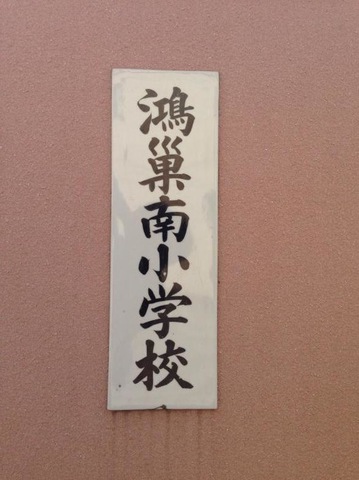 鴻巣南小学校